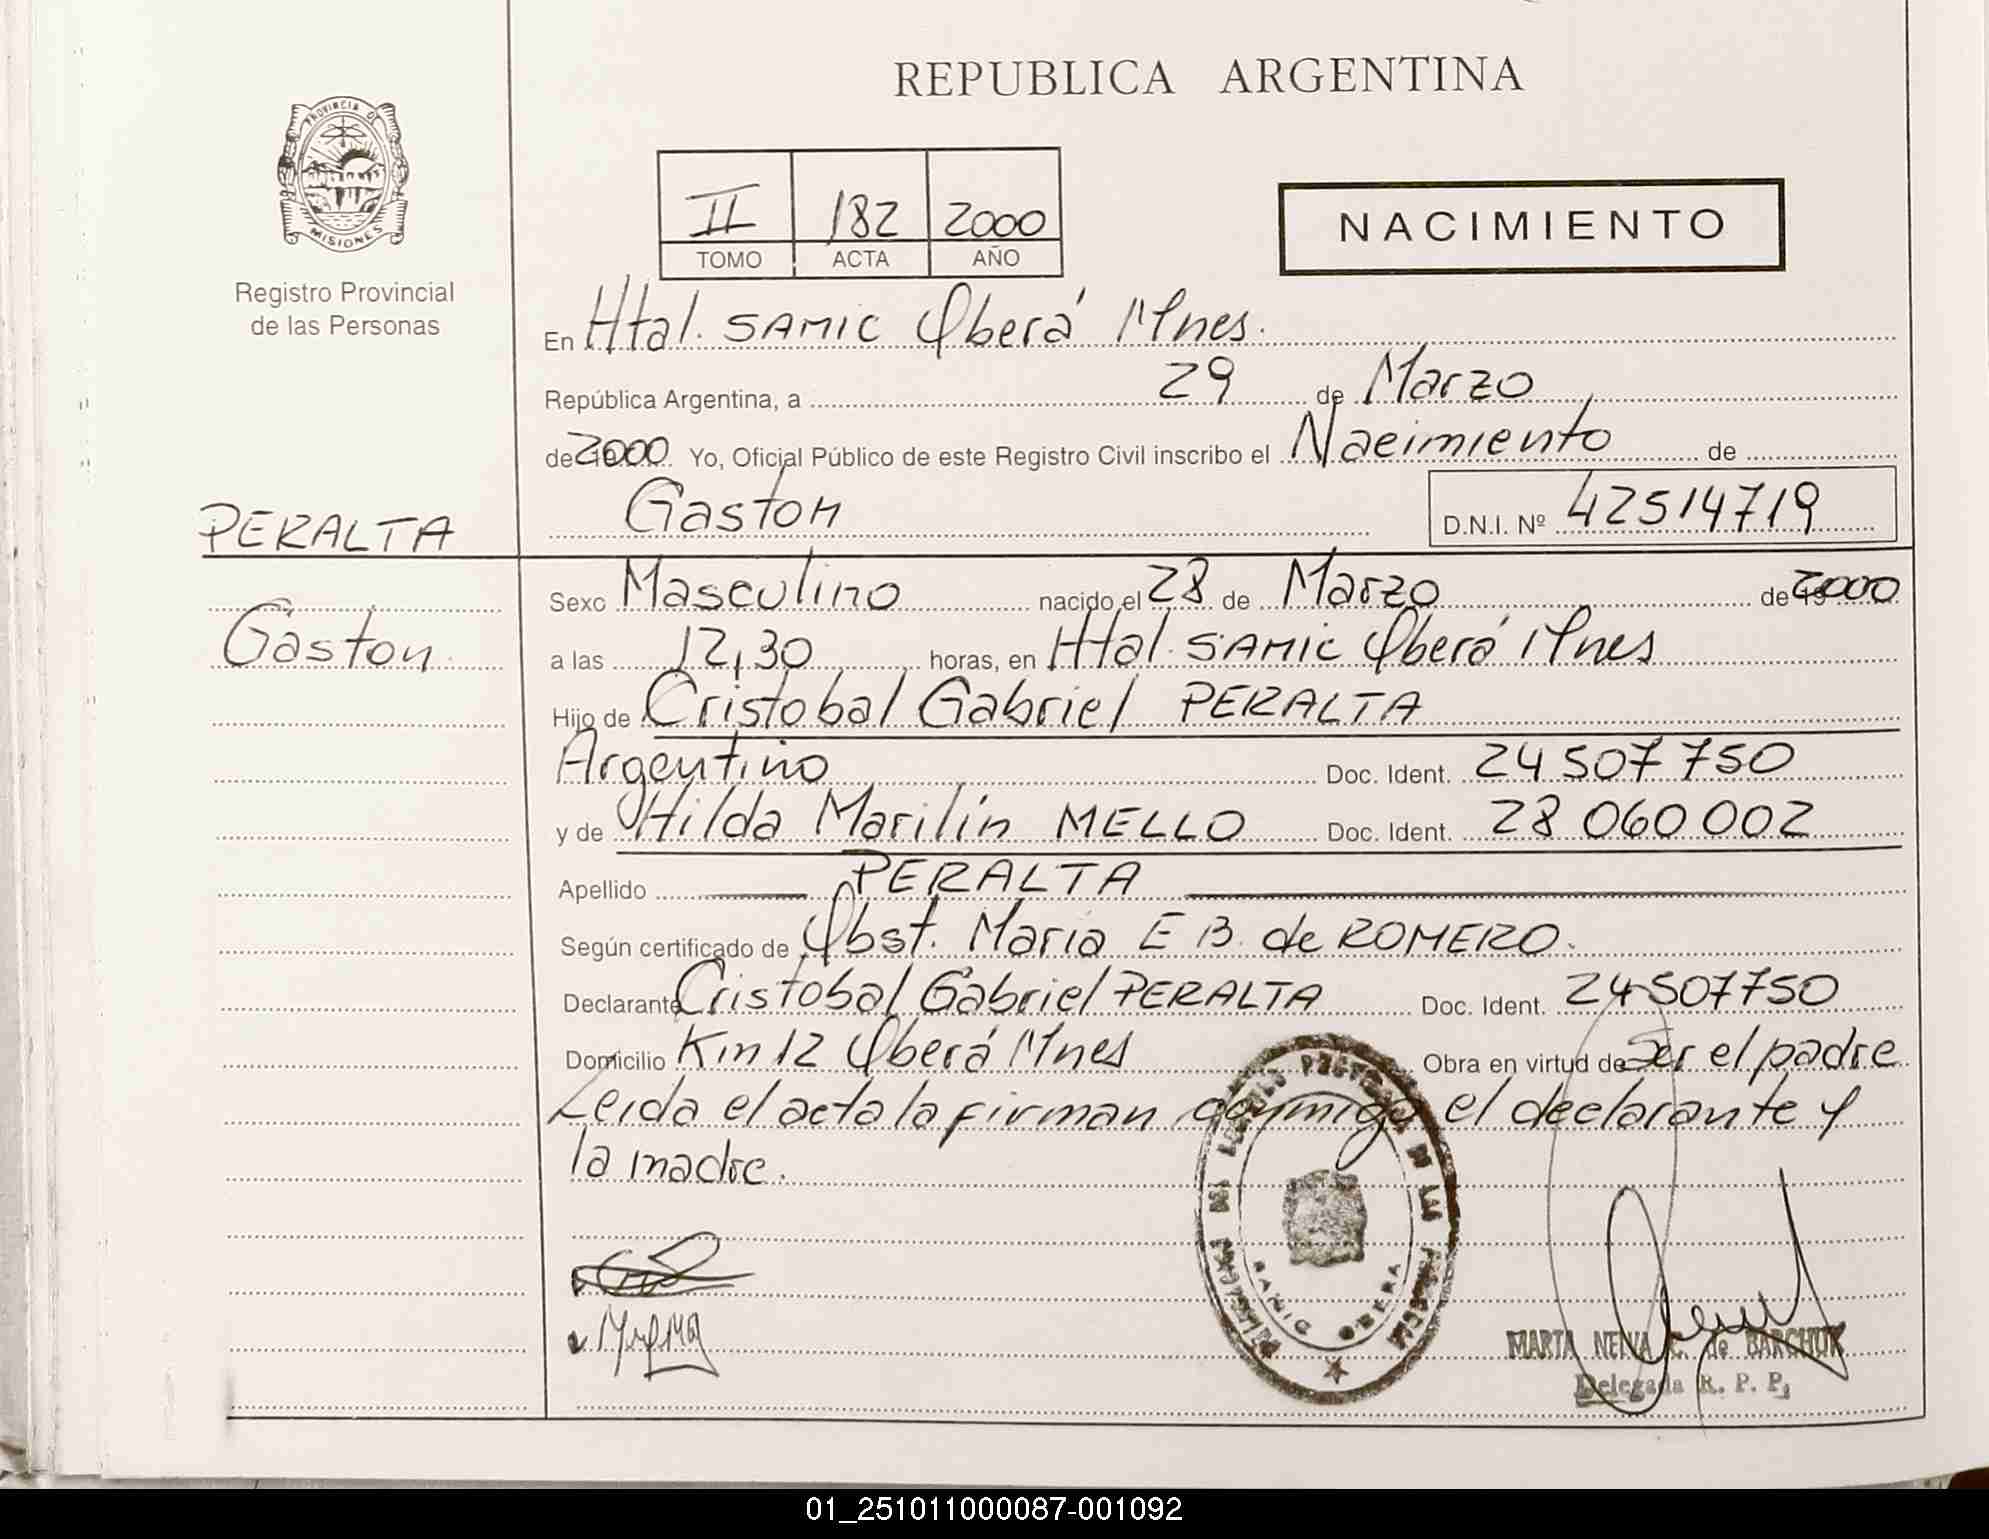 REPUBLICA ARGENTINA
PROVINCIA DE
MISIONES
Registro Provincial
de las Personas
II 182 2000
TOMO ACTA AÑO
NACIMIENTO
En Htal. SAMIC Oberá Mnes.
República Argentina, a 29 de Marzo
de 2000 Yo, Oficial Público de este Registro Civil inscribo el Nacimiento de
Gaston D.N.I. Nº 42514719
PERALTA
Gaston
Sexo Masculino nacido el 28 de Marzo de 2000
a las 12,30 horas, en Htal. SAMIC Oberá Mnes
Hijo de Cristobal Gabriel PERALTA
Argentino Doc. Ident. 24 507 750
y de Hilda Marilín MELLO Doc. Ident. 28 060 002
Apellido PERALTA
Según certificado de Obst. María E B. de ROMERO.
Declarante Cristobal Gabriel PERALTA Doc. Ident. 24507750
Domicilio Km 12 Oberá Mnes Obra en virtud de Ser el padre
Leida el acta la firman conmigo el declarante y
la madre.
SAMIC OBERA
MARTA NEIVA C. de BARCHUK
Delegada R. P. P.
01_251011000087-001092